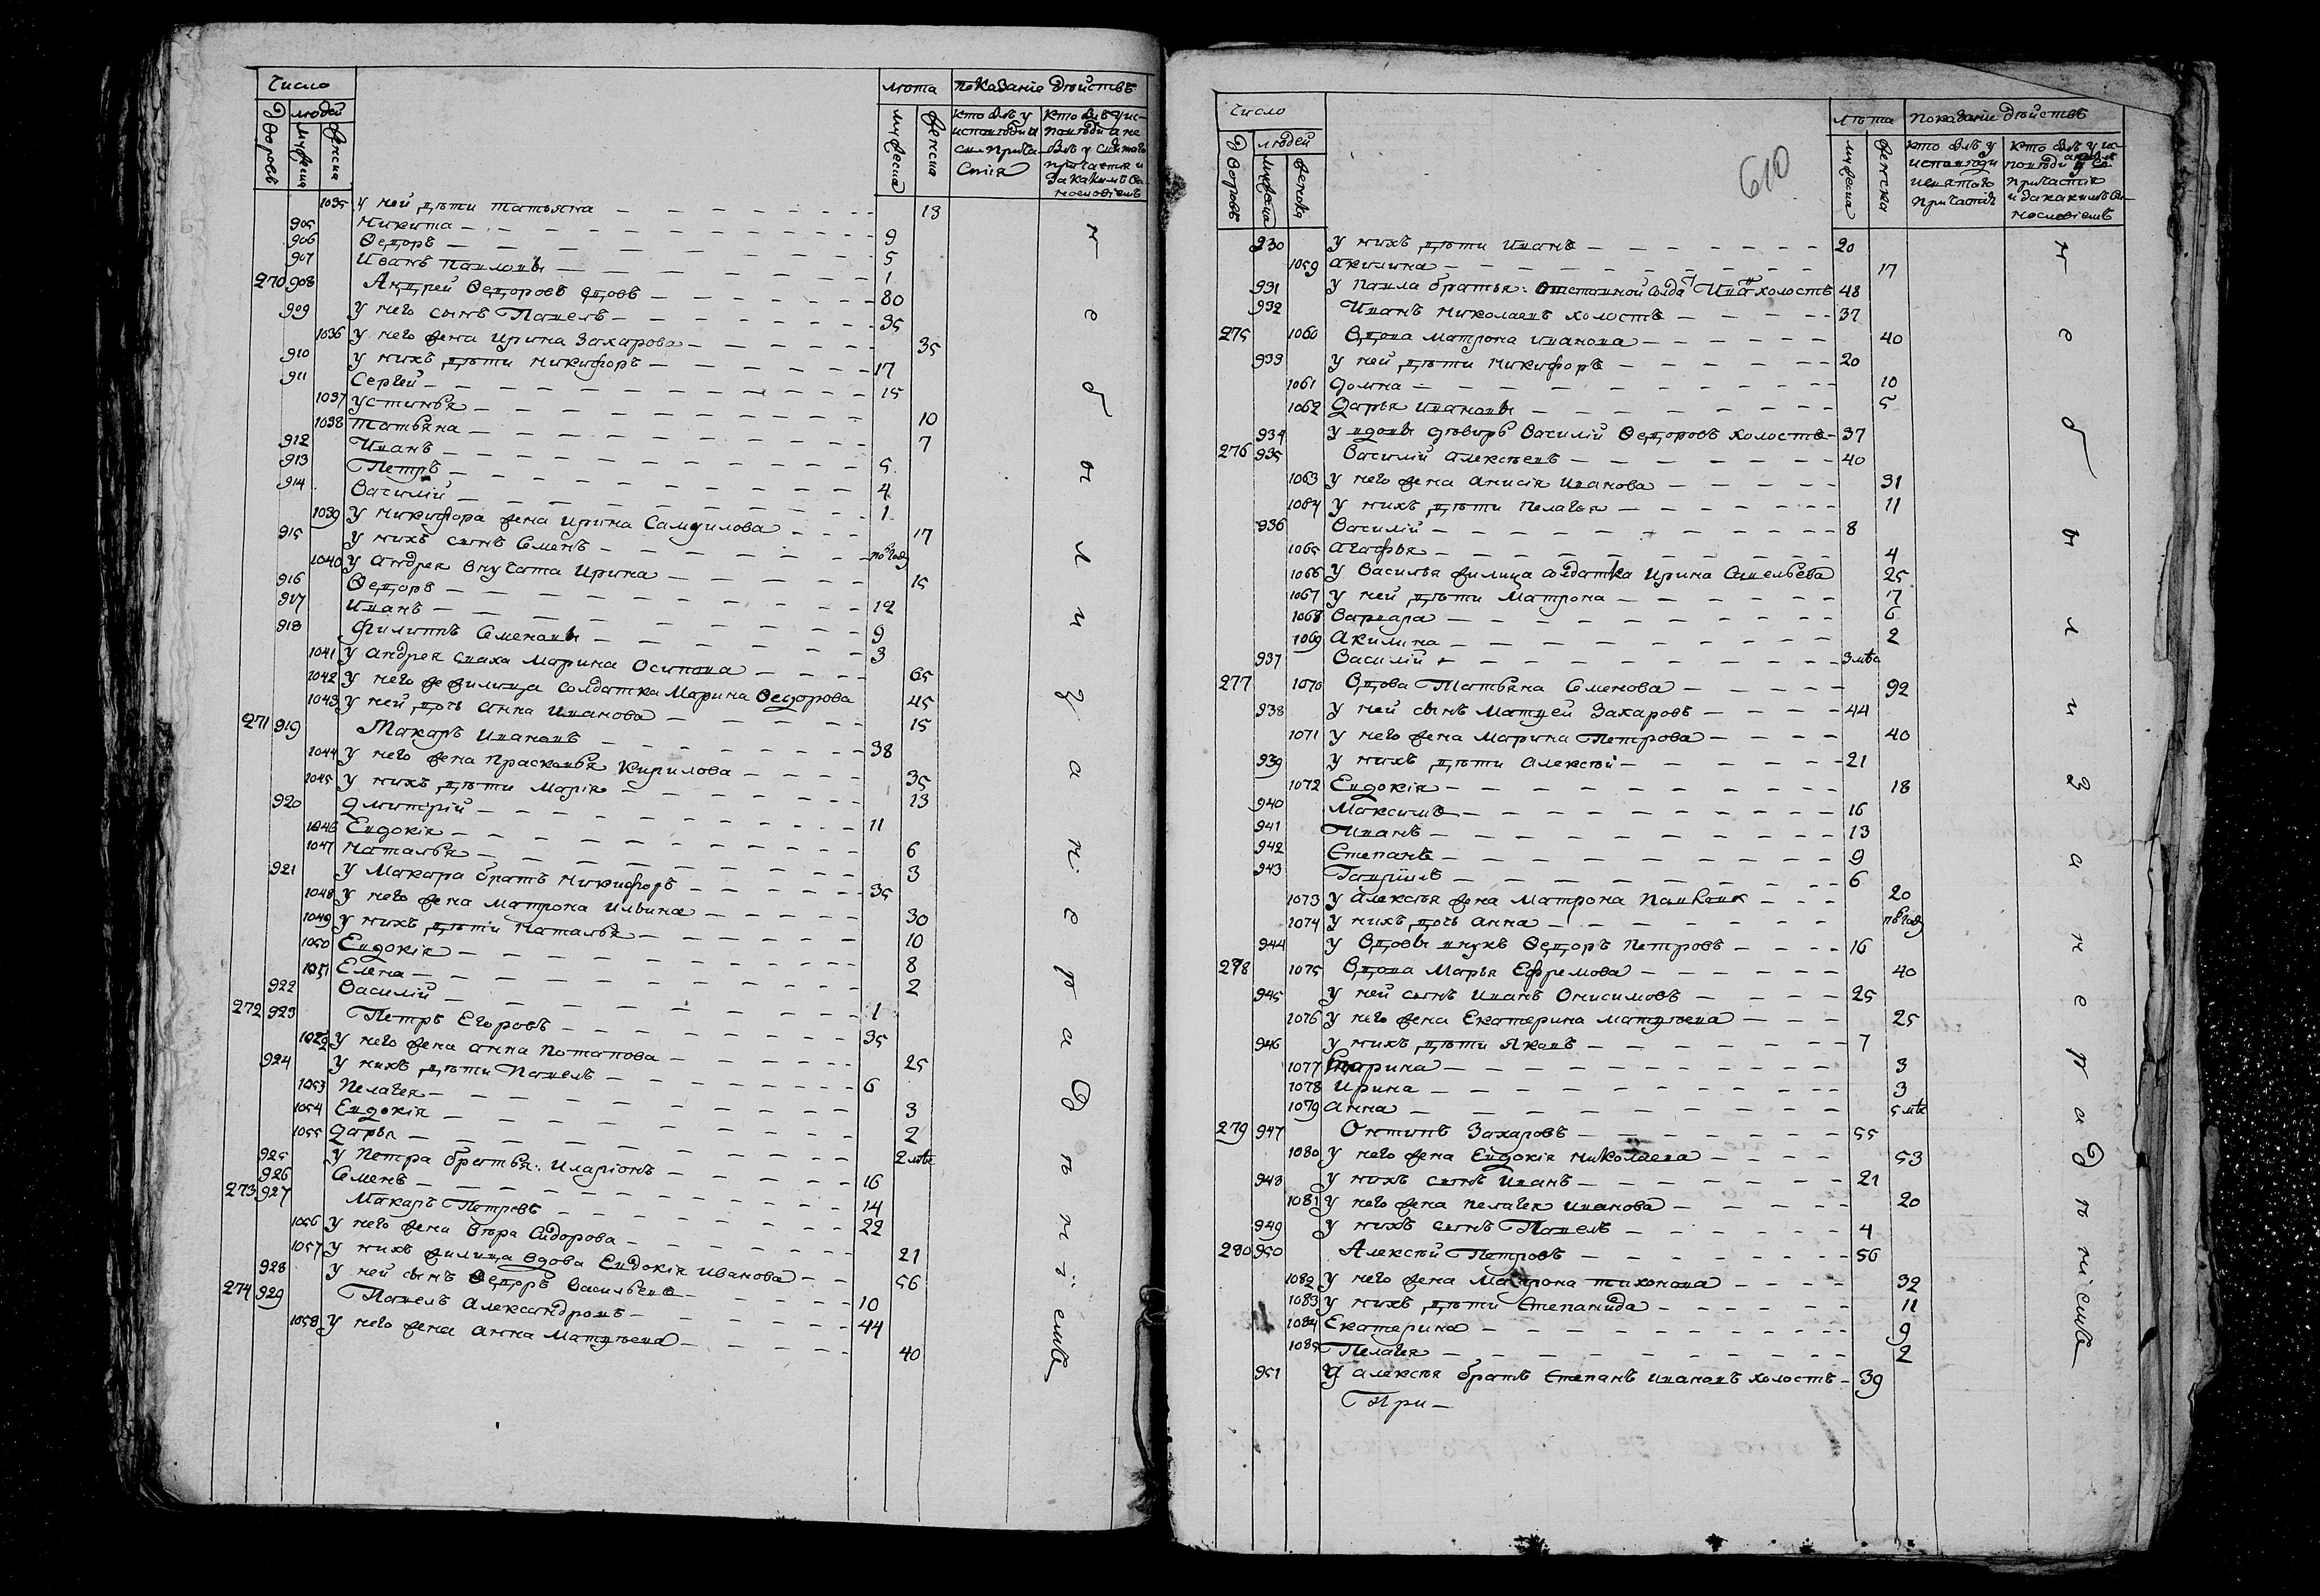 Число
лѣта показаніе дѣйствъ
Дворовъ людей мужеска женска
мужеска женска
кто былъ у исповѣди и св. причастія
кто былъ у исповѣди а не былъ у святаго причастія и за какимъ винословіемъ
1035 у ней дѣти Татьяна 13
905 Никита 9
906 Ѳедоръ 5
907 Иванъ Павловы 1
270 908 Андрей Ѳедоровъ вдовъ 80
909 у него сынъ Павелъ 35
1036 у него жена Ирина Захарова 35
910 у нихъ дѣти Никифоръ 17
911 Сергей 15
1037 Устинья 10
1038 Татьяна 7
912 Иванъ 5
913 Петръ 4
914 Василій 1
1039 у Никифора жена Ирина Самуилова 17
915 у нихъ сынъ Семенъ полгод
1040 у Андрея внучата Ирина 15
916 Ѳедоръ 12
917 Иванъ 9
918 Филиппъ Семеновы 3
1041 у Андрея снаха Марина Осипова 65
1042 у него же жилица солдатка Марина Ѳедорова 45
1043 у ней дочь Анна Иванова 15
271 919 Макаръ Ивановъ 38
1044 у него жена Прасковья Кирилова 35
1045 у нихъ дѣти Марія 13
920 Дмитрій 11
1046 Евдокія 6
1047 Наталья 3
921 у Макара братъ Никифоръ 35
1048 у него жена Матрона Ильина 30
1049 у нихъ дѣти Наталья 10
1050 Евдокія 8
1051 Елена 2
922 Василій 1
272 923 Петръ Егоровъ 35
1052 у него жена Анна Потапова 25
924 у нихъ дѣти Павелъ 6
1053 Пелагея 3
1054 Евдокія 2
1055 Дарья 2 мѣс
925 у Петра братья: Иларіонъ 16
926 Семенъ 14
273 927 Макаръ Петровъ 22
1056 у него жена Вѣра Сидорова 21
1057 у нихъ жилица вдова Евдокія Иванова 56
928 у ней сынъ Ѳедоръ Васильевъ 10
274 929 Павелъ Александровъ 44
1058 у него жена Анна Матвѣева 40
не были за нерадѣніемъ
610
Число
лѣта показаніе дѣйствъ
Дворовъ людей мужеска женска
мужеска женска
кто былъ у исповѣди и святаго причастія
причастія и за какимъ винословіемъ
930 у нихъ дѣти Иванъ 20
1059 Акилина 17
931 у Павла братья: отставной солдат Иван холостъ 48
932 Иванъ Николаевъ холостъ 37
275 1060 Вдова Матрона Иванова 40
933 у ней дѣти Никифоръ 20
1061 Домна 10
1062 Дарья Ивановы 5
934 у вдовы дѣверь Василій Ѳедоровъ холостъ 37
276 935 Василій Алексѣевъ 40
1063 у него жена Анисія Иванова 31
1064 у нихъ дѣти Пелагея 11
936 Василій 8
1065 Агафья 4
1066 у Василья жилица солдатка Ирина Савельева 25
1067 у ней дѣти Матрона 7
1068 Варвара 6
1069 Акилина 2
937 Василій 3 мѣс
277 1070 Вдова Татьяна Семенова 92
938 у ней сынъ Матвей Захаровъ 44
1071 у него жена Марина Петрова 40
939 у нихъ дѣти Алексѣй 21
1072 Евдокія 18
940 Максимъ 16
941 Иванъ 13
942 Степанъ 9
943 Гавріилъ 6
1073 у Алексѣя жена Матрона Павлова 20
1074 у нихъ дочь Анна полгод
944 у вдовы внукъ Ѳедоръ Петровъ 16
278 1075 Вдова Марья Ефремова 40
945 у ней сынъ Иванъ Онисимовъ 25
1076 у него жена Екатерина Матвѣева 25
946 у нихъ дѣти Яковъ 7
1077 Марина 3
1078 Ирина 3
1079 Анна 5 мѣс
279 947 Онтипъ Захаровъ 55
1080 у него жена Евдокія Николаева 53
948 у нихъ сынъ Иванъ 21
1081 у него жена Пелагея Иванова 20
949 у нихъ сынъ Павелъ 4
280 950 Алексѣй Петровъ 56
1082 у него жена Матрона Тихонова 32
1083 у нихъ дѣти Степанида 11
1084 Екатерина 9
1085 Пелагея 2
951 У Алексѣя братъ Степанъ Ивановъ холостъ 39
При-
не были за нерадѣніемъ